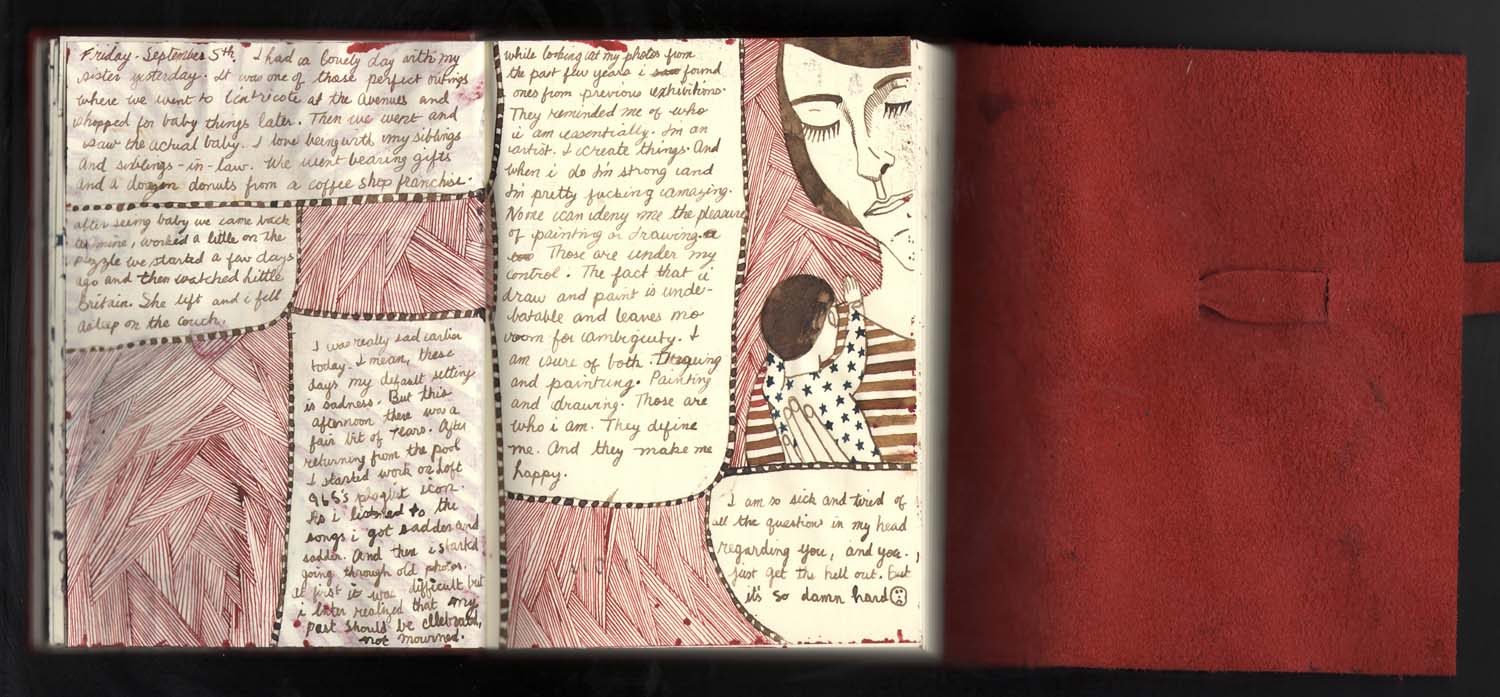 Friday. September 5th. I had a lovely day with my
sister yesterday. It was one of those perfect outings
where we went to L'entricote at the Avenues and
shopped for baby things later. Then we went and
saw the actual baby. I love being with my siblings
and siblings-in-law. We went bearing gifts
and a dozen donuts from a coffee shop franchise.
after seeing baby we came back
to mine, worked a little on the
puzzle we started a few days
ago and then watched Little
Britain. She left and i fell
asleep on the couch.
I was really sad earlier
today. I mean, these
days my default setting
is sadness. But this
afternoon there was a
fair bit of tears. After
returning from the pool
I started work on Loft
965's piquit icon.
As i listened to the
songs i got sadder and
sadder. And then i started
going through old photos.
at first it was difficult but
i later realized that my
past should be celebrated,
not mourned.
while looking at my photos from
the past few years i found
ones from previous exhibitions.
They reminded me of who
i am essentially. I'm an
artist. I create things. And
when i do I'm strong and
I'm pretty fucking amazing.
None can deny me the pleasure
of painting or drawing.
Those are under my
control. The fact that i
draw and paint is unde-
batable and leaves no
room for ambiguity. I
am sure of both. Drawing
and painting. Painting
and drawing. Those are
who i am. They define
me. And they make me
happy.
I am so sick and tired of
all the questions in my head
regarding you, and you.
just get the hell out. But
it's so damn hard